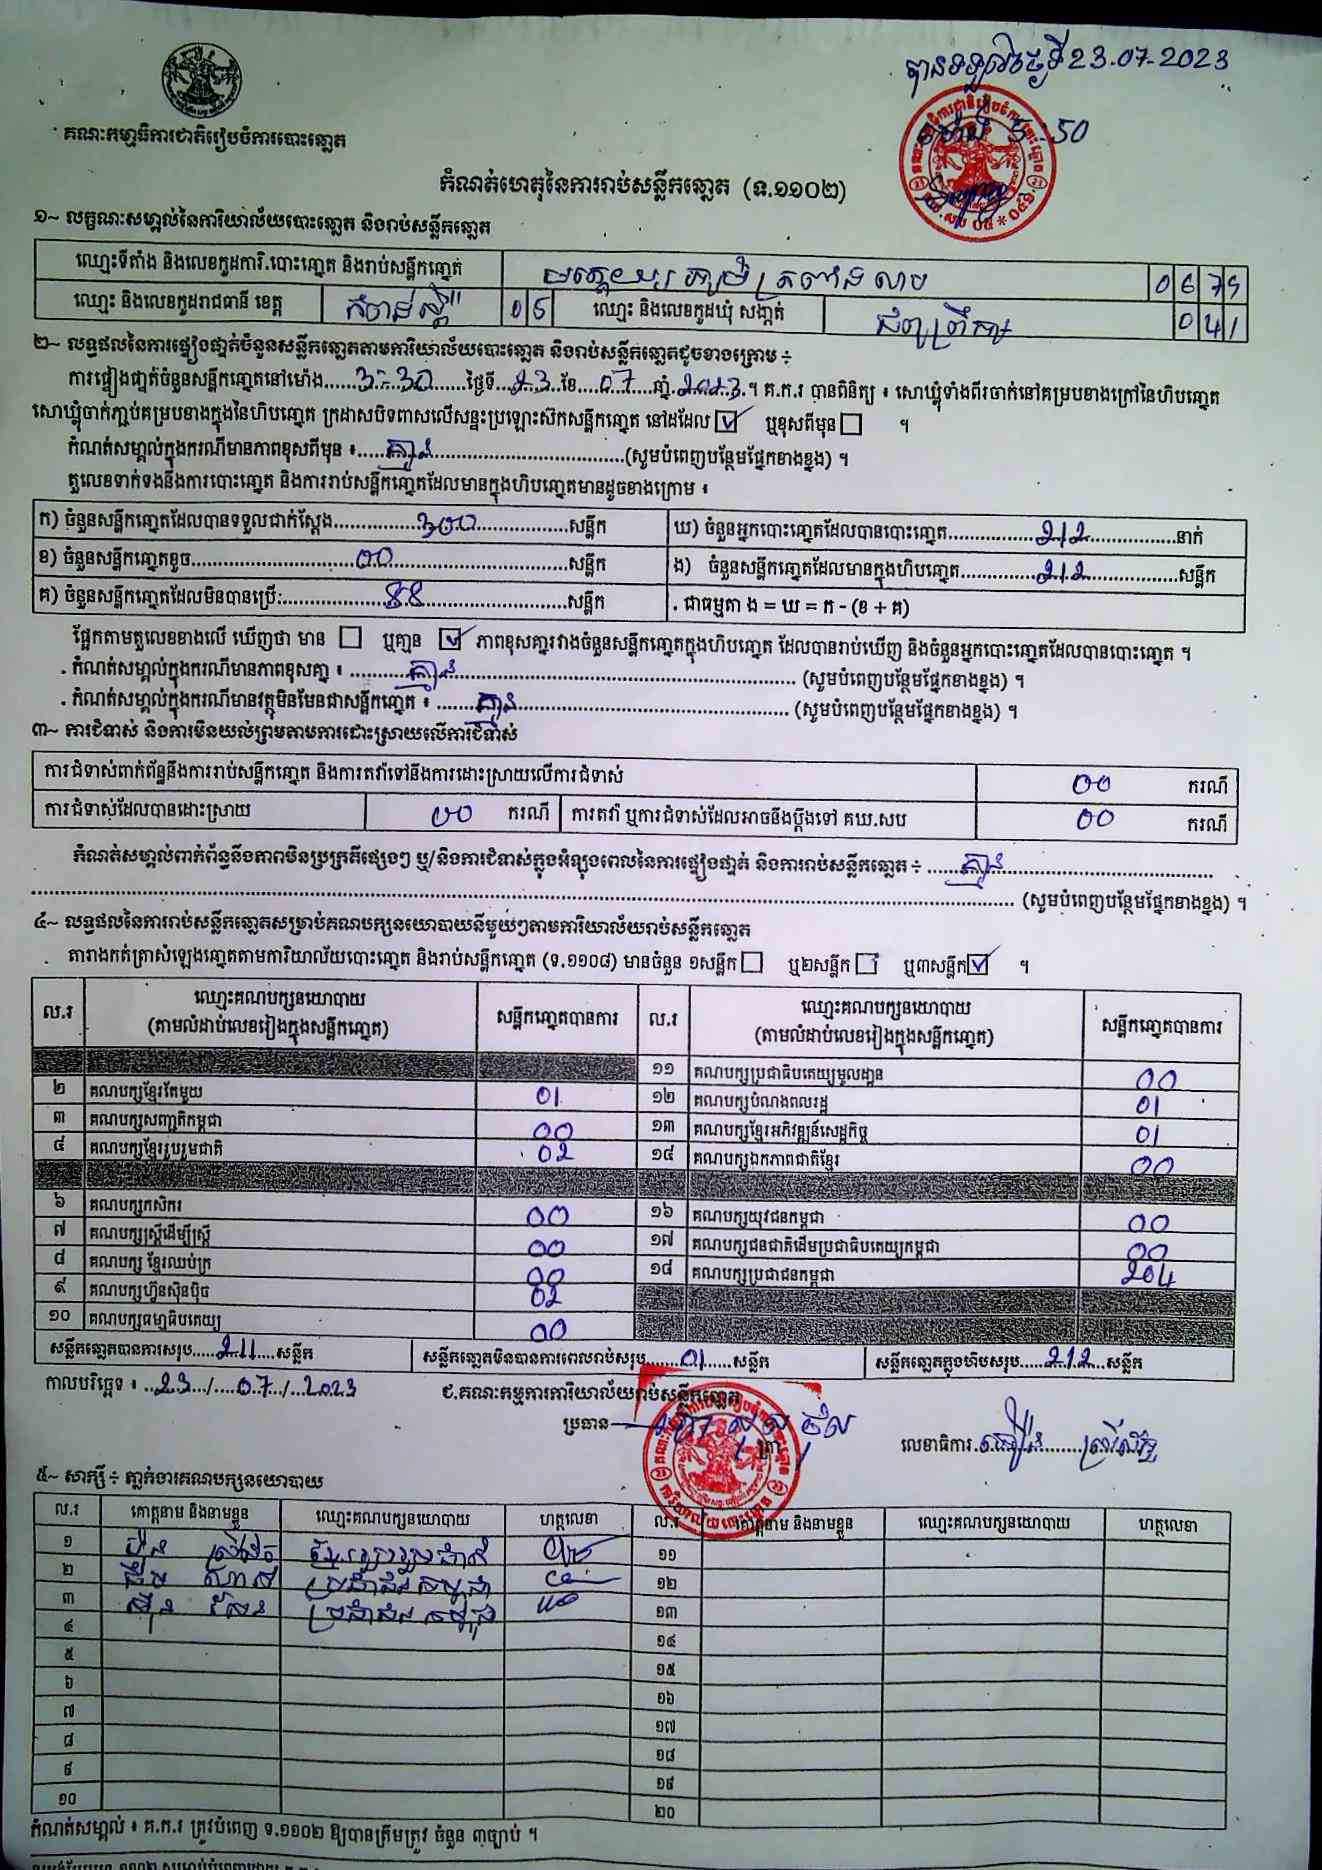 បានទទួលថ្ងៃទី 23.07.2023
ម៉ោង 5:50
គណៈកម្មាធិការជាតិរៀបចំការបោះឆ្នោត
កំណត់ហេតុនៃការរាប់សន្លឹកឆ្នោត (ទ.១១០២)
១~ លក្ខណៈសម្គាល់នៃការិយាល័យបោះឆ្នោត និងរាប់សន្លឹកឆ្នោត
ឈ្មោះទីតាំង និងលេខកូដការិ.បោះឆ្នោត និងរាប់សន្លឹកឆ្នោត
ឈ្មោះ និងលេខកូដរាជធានី ខេត្ត កំពង់ស្ពឺ 05 ឈ្មោះ និងលេខកូដឃុំ សង្កាត់ 041
២~ លទ្ធផលនៃការផ្ទៀងផ្ទាត់ចំនួនសន្លឹកឆ្នោតតាមការិយាល័យបោះឆ្នោត និងរាប់សន្លឹកឆ្នោតដូចខាងក្រោម ៖
ការផ្ទៀងផ្ទាត់ចំនួនសន្លឹកឆ្នោតនៅម៉ោង 3:30 ថ្ងៃទី 23 ខែ 07 ឆ្នាំ 2023 ។ គ.ក.រ បានពិនិត្យ ៖ សោឃ្លុំទាំងពីរចាក់នៅគម្របខាងក្រៅនៃហិបឆ្នោត
សោឃ្លុំចាក់ភ្ជាប់គម្របខាងក្នុងនៃហិបឆ្នោត ក្រដាសបិទពាសលើសន្ទះប្រឡោះស៊កសន្លឹកឆ្នោត នៅដដែល ☑ ឬខុសពីមុន ☐ ។
កំណត់សម្គាល់ក្នុងករណីមានភាពខុសពីមុន ៖ គ្មាន (សូមបំពេញបន្ថែមផ្នែកខាងខ្នង) ។
តួលេខទាក់ទងនឹងការបោះឆ្នោត និងការរាប់សន្លឹកឆ្នោតដែលមានក្នុងហិបឆ្នោតមានដូចខាងក្រោម ៖
ក) ចំនួនសន្លឹកឆ្នោតដែលបានទទួលជាក់ស្តែង 300 សន្លឹក ឃ) ចំនួនអ្នកបោះឆ្នោតដែលបានបោះឆ្នោត 212 នាក់
ខ) ចំនួនសន្លឹកឆ្នោតខូច 00 សន្លឹក ង) ចំនួនសន្លឹកឆ្នោតដែលមានក្នុងហិបឆ្នោត 212 សន្លឹក
គ) ចំនួនសន្លឹកឆ្នោតដែលមិនបានប្រើ: 88 សន្លឹក . ជាធម្មតា ង = ឃ = ក - (ខ + គ)
ផ្អែកតាមតួលេខខាងលើ ឃើញថា មាន ☐ ឬគ្មាន ☑ ភាពខុសគ្នារវាងចំនួនសន្លឹកឆ្នោតក្នុងហិបឆ្នោត ដែលបានរាប់ឃើញ និងចំនួនអ្នកបោះឆ្នោតដែលបានបោះឆ្នោត ។
. កំណត់សម្គាល់ក្នុងករណីមានភាពខុសគ្នា ៖ គ្មាន (សូមបំពេញបន្ថែមផ្នែកខាងខ្នង) ។
. កំណត់សម្គាល់ក្នុងករណីមានវត្ថុមិនមែនជាសន្លឹកឆ្នោត ៖ គ្មាន (សូមបំពេញបន្ថែមផ្នែកខាងខ្នង) ។
៣~ ការជំទាស់ និងការមិនយល់ព្រមតាមការដោះស្រាយលើការជំទាស់
ការជំទាស់ពាក់ព័ន្ធនឹងការរាប់សន្លឹកឆ្នោត និងការតវ៉ាទៅនឹងការដោះស្រាយលើការជំទាស់ 00 ករណី
ការជំទាស់ដែលបានដោះស្រាយ 00 ករណី ការតវ៉ា ឬការជំទាស់ដែលអាចនឹងប្តឹងទៅ គឃ.សប 00 ករណី
កំណត់សម្គាល់ពាក់ព័ន្ធនឹងភាពមិនប្រក្រតីផ្សេងៗ ឬ/និងការជំទាស់ក្នុងអំឡុងពេលនៃការផ្ទៀងផ្ទាត់ និងការរាប់សន្លឹកឆ្នោត ៖ គ្មាន
(សូមបំពេញបន្ថែមផ្នែកខាងខ្នង) ។
៤~ លទ្ធផលនៃការរាប់សន្លឹកឆ្នោតសម្រាប់គណបក្សនយោបាយនីមួយៗតាមការិយាល័យរាប់សន្លឹកឆ្នោត
តារាងកត់ត្រាសំឡេងឆ្នោតតាមការិយាល័យបោះឆ្នោត និងរាប់សន្លឹកឆ្នោត (ទ.១១០៨) មានចំនួន ១សន្លឹក ☐ ឬ២សន្លឹក ☐ ឬ៣សន្លឹក ☑ ។
ល.រ ឈ្មោះគណបក្សនយោបាយ (តាមលំដាប់លេខរៀងក្នុងសន្លឹកឆ្នោត) សន្លឹកឆ្នោតបានការ ល.រ ឈ្មោះគណបក្សនយោបាយ (តាមលំដាប់លេខរៀងក្នុងសន្លឹកឆ្នោត) សន្លឹកឆ្នោតបានការ
១១ គណបក្សប្រជាធិបតេយ្យមូលដ្ឋាន 00
២ គណបក្សខ្មែរតែមួយ 01 ១២ គណបក្សបំណងពលរដ្ឋ 01
៣ គណបក្សសញ្ជាតិកម្ពុជា 00 ១៣ គណបក្សខ្មែរអភិវឌ្ឍន៍សេដ្ឋកិច្ច 01
៤ គណបក្សខ្មែររួបរួមជាតិ 02 ១៤ គណបក្សឯកភាពជាតិខ្មែរ 00
៦ គណបក្សកសិករ 00 ១៦ គណបក្សយុវជនកម្ពុជា 00
៧ គណបក្សស្ត្រីដើម្បីស្ត្រី 00 ១៧ គណបក្សជនជាតិដើមប្រជាធិបតេយ្យកម្ពុជា 00
៨ គណបក្ស ខ្មែរឈប់ក្រ 00 ១៨ គណបក្សប្រជាជនកម្ពុជា 204
៩ គណបក្សហ៊្វុនស៊ិនប៉ិច 02
១០ គណបក្សធម្មាធិបតេយ្យ 00
សន្លឹកឆ្នោតបានការសរុប 211 សន្លឹក សន្លឹកឆ្នោតមិនបានការពេលរាប់សរុប 01 សន្លឹក សន្លឹកឆ្នោតក្នុងហិបសរុប 212 សន្លឹក
កាលបរិច្ឆេទ ៖ 23/07/2023 ជ.គណៈកម្មការការិយាល័យរាប់សន្លឹកឆ្នោត
ប្រធាន លេខាធិការ
៥~ សាក្សី ៖ ភ្នាក់ងារគណបក្សនយោបាយ
ល.រ គោត្តនាម និងនាមខ្លួន ឈ្មោះគណបក្សនយោបាយ ហត្ថលេខា ល.រ គោត្តនាម និងនាមខ្លួន ឈ្មោះគណបក្សនយោបាយ ហត្ថលេខា
១ ខ្មែររួបរួមជាតិ ១១
២ ប្រជាជនកម្ពុជា ១២
៣ ប្រជាជនកម្ពុជា ១៣
៤ ១៤
៥ ១៥
៦ ១៦
៧ ១៧
៨ ១៨
៩ ១៩
១០ ២០
កំណត់សម្គាល់ ៖ គ.ក.រ ត្រូវបំពេញ ទ.១១០២ ឱ្យបានត្រឹមត្រូវ ចំនួន ៣ច្បាប់ ។